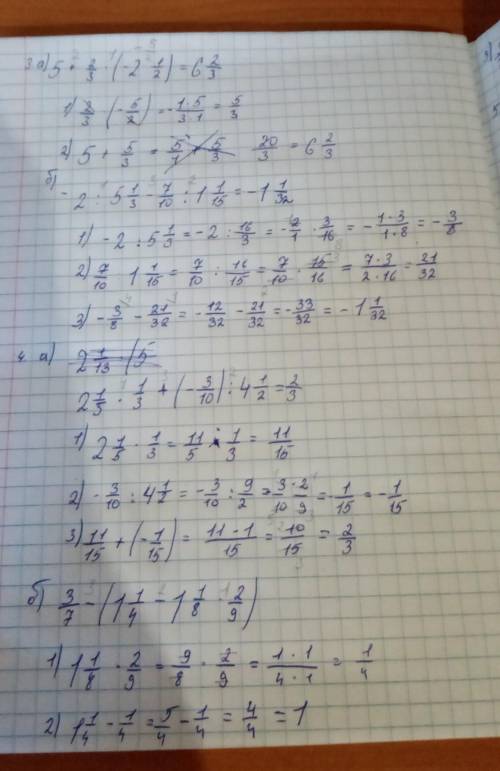 3 а) 5 + 2/3 · (-2 1/2) = 6 2/3
1) 2/3 · (-5/2) = -1·5/3·1 = 5/3
2) 5 + 5/3 = 5/1 + 5/3 20/3 = 6 2/3
б)
-2 : 5 1/3 - 7/10 : 1 1/15 = -1 1/32
1) -2 : 5 1/3 = -2 : 16/3 = -2/1 · 3/16 = -1·3/1·8 = -3/8
2) 7/10 1 1/15 = 7/10 : 16/15 = 7/10 · 15/16 = 7·3/2·16 = 21/32
3) -3/8 - 21/32 = -12/32 - 21/32 = -33/32 = -1 1/32
4. а) 2 1/13 · (5
2 1/5 · 1/3 + (-3/10) : 4 1/2 = 2/3
1) 2 1/5 · 1/3 = 11/5 · 1/3 = 11/15
2) -3/10 : 4 1/2 = -3/10 : 9/2 = 3·2/10 9 = -1/15 = -1/15
3) 11/15 + (-1/15) = 11-1/15 = 10/15 = 2/3
б) 3/7 - (1 1/4 - 1 1/8 · 2/9)
1) 1 1/8 · 2/9 = 9/8 · 2/9 = 1·1/4·1 = 1/4
2) 1 1/4 - 1/4 = 5/4 - 1/4 = 4/4 = 1